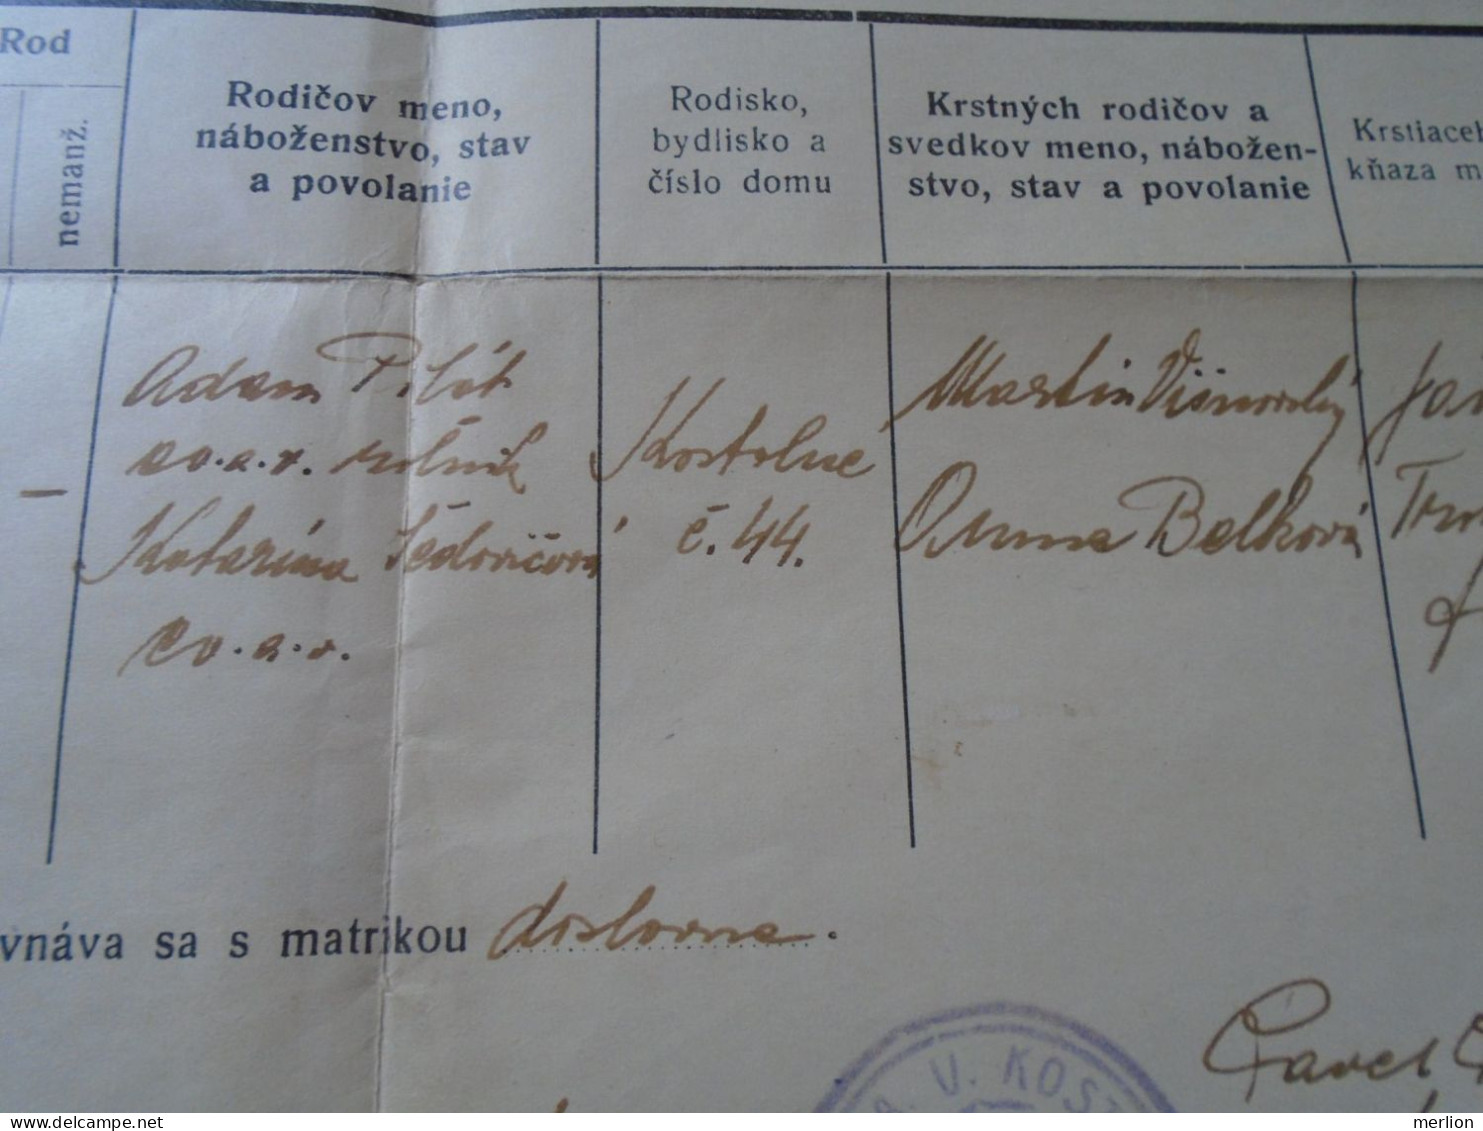 Rod
nemanž.
Rodičov meno,
náboženstvo, stav
a povolanie
Rodisko,
bydlisko a
číslo domu
Krstných rodičov a
svedkov meno, nábožen-
stvo, stav a povolanie
Krstiaceh
kňaza m
Adam Pilát
ev. a. v. roľník
Katarína Šedovičová
ev. a. v.
Kostolné
č. 44.
Martin Višňovský
Anna Belková
Jan
–
vnáva sa s matrikou doslovne.
Pavel
A. V. KOST
merlion